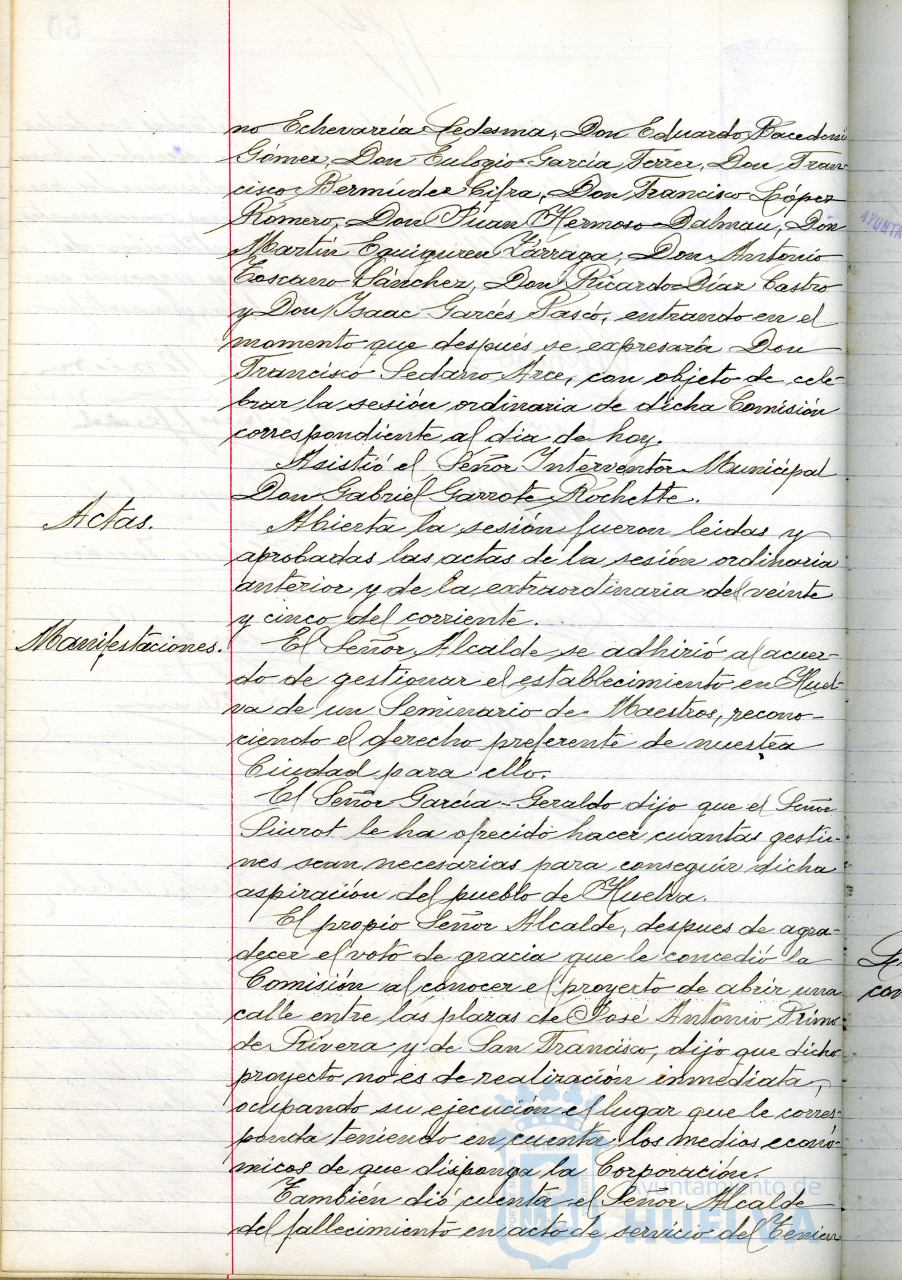 no Echevarría Ledesma, Don Eduardo
Gómez, Don Eulogio García Ferrer, Don Fran-
cisco Bermúdez Cifra, Don Francisco López
Romero, Don Juan Hermoso Dalmau, Don
Martín Eguiguren Zárraga, Don Antonio
Toscano Sánchez, Don Ricardo Díaz Castro
y Don Isaac Garcés Pascó, entrando en el
momento que después se expresará Don
Francisco Sedano Arce, con objeto de cele-
brar la sesión ordinaria de dicha Comisión
correspondiente al dia de hoy.
Asistió el Señor Interventor Municipal
Don Gabriel Garrote Rochette.
Actas.
Abierta la sesión fueron leidas y
aprobadas las actas de la sesión ordinaria
anterior y de la extraordinaria del veinte
y cinco del corriente.
Manifestaciones.
El Señor Alcalde se adhirió al acuer-
do de gestionar el establecimiento en Huel-
va de un Seminario de Maestros, recono-
ciendo el derecho preferente de nuestra
Ciudad para ello.
El Señor García-Geraldo dijo que el Señor
Siurot le ha ofrecido hacer cuantas gestio-
nes sean necesarias para conseguir dicha
aspiración del pueblo de Huelva.
El propio Señor Alcalde, despues de agra-
decer el voto de gracia que le concedió la
Comisión al conocer el proyecto de abrir una
calle entre las plazas de José Antonio Primo
de Rivera y de San Francisco, dijo que dicho
proyecto no es de realización inmediata,
ocupando su ejecución el lugar que le corres-
ponda teniendo en cuenta los medios econó-
micos de que disponga la Corporación.
También dió cuenta el Señor Alcalde
del fallecimiento en acto de servicio del Tenien
Ayuntamiento de
HUELVA